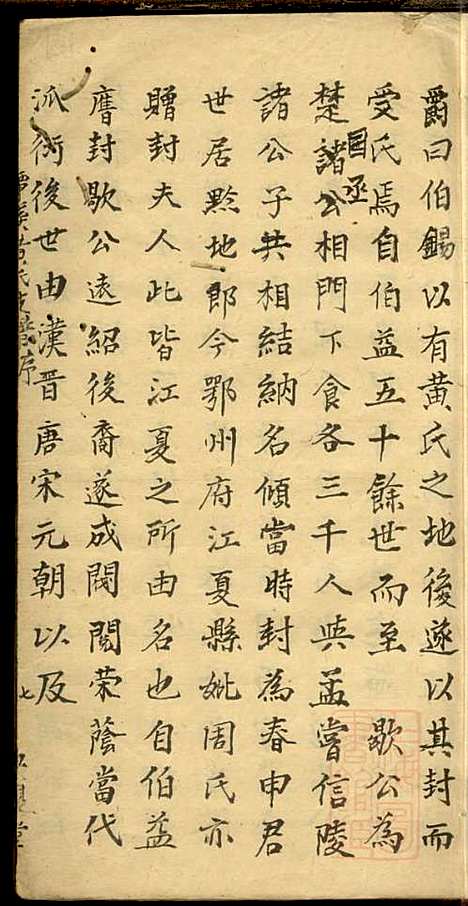 爵曰伯錫以有黃氏之地後遂以其封而
受氏焉自伯益五十餘世而至歇公為
楚諸公相門下食各三千人與孟嘗信陵
國丞
諸公子共相結納名傾當時封為春申君
世居黔地郎今鄂州府江夏縣妣周氏亦
贈封夫人此皆江夏之所由名也自伯益
膺封歇公遠紹後裔遂成閥閱荣蔭當代
派衍後世由漢晋唐宋元朝以及
黃氏支譜序
七